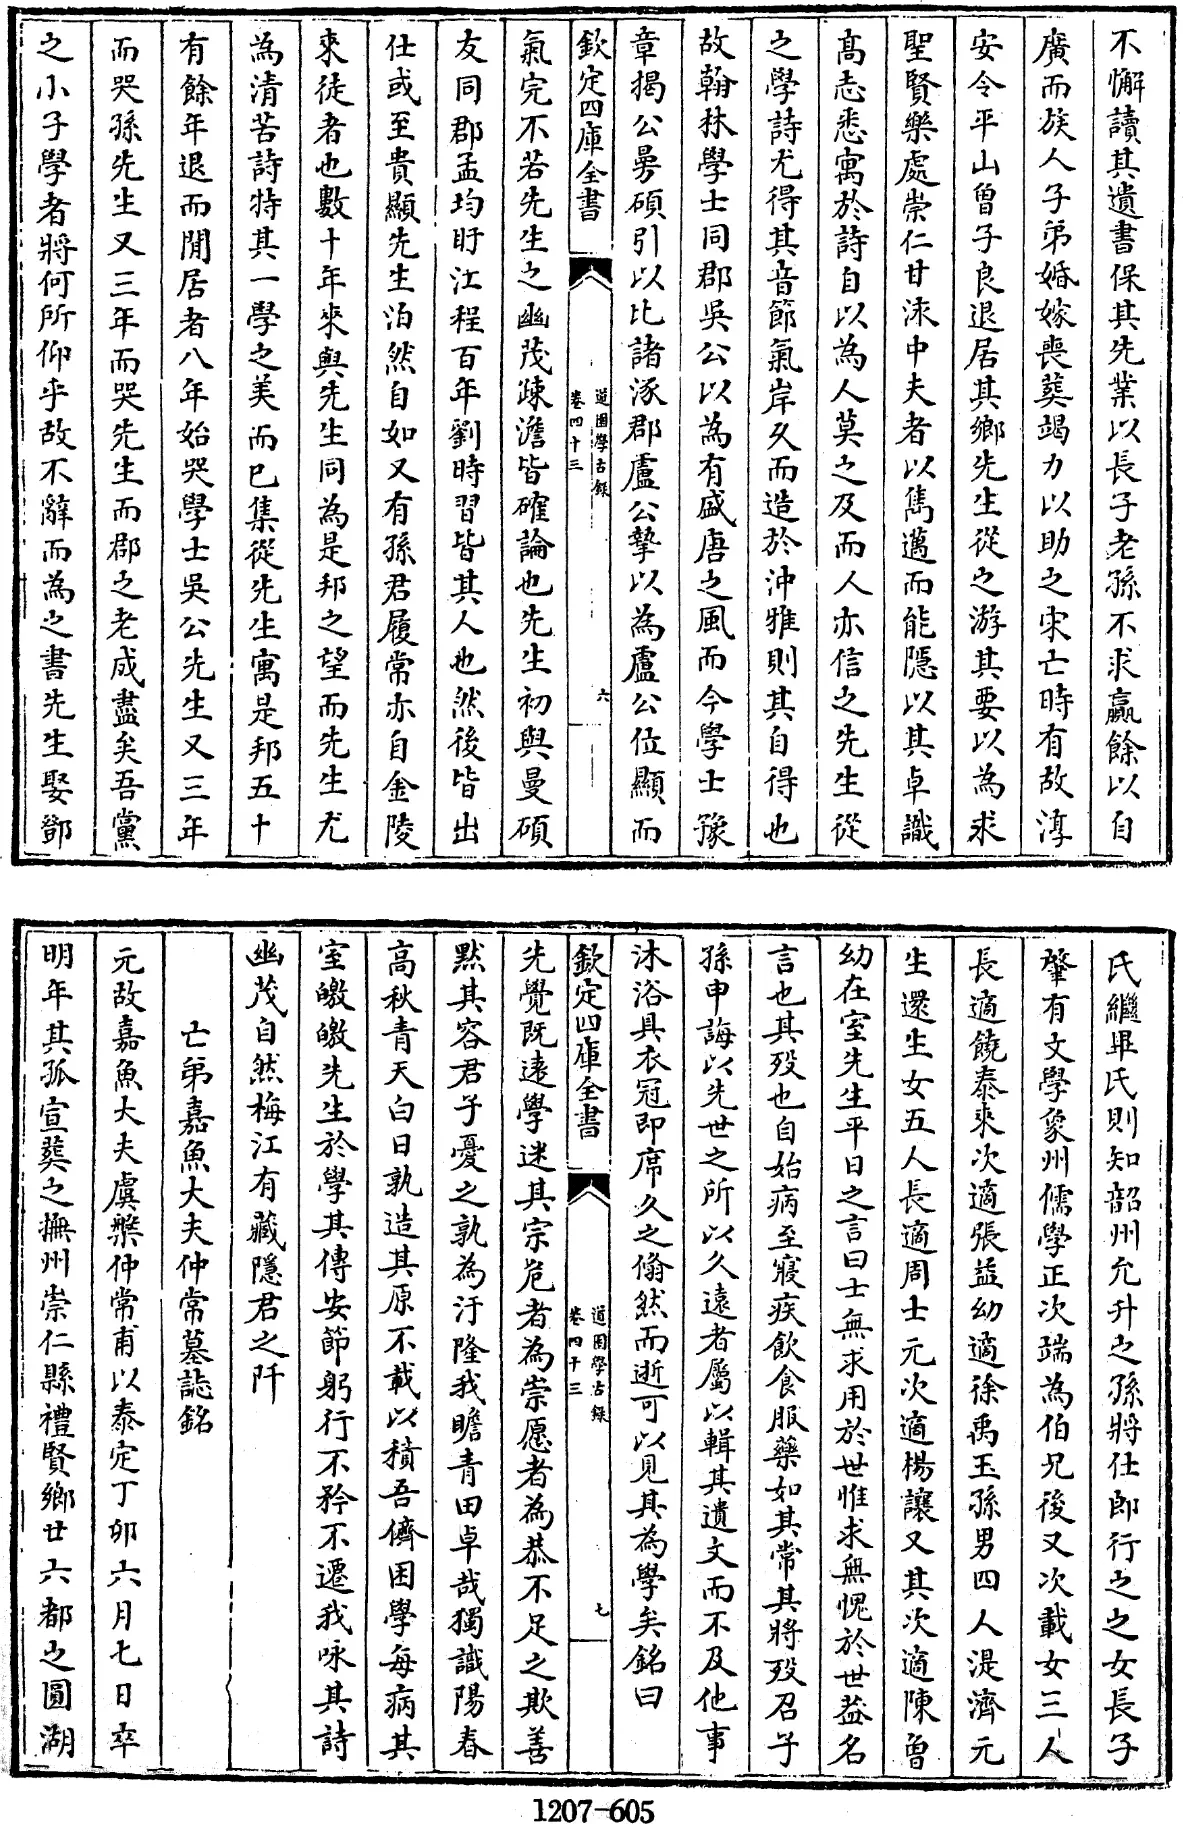 不懈讀其遺書保其先業以長子老孫不求贏餘以自
廣而族人子弟婚嫁喪葬竭力以助之宋亡時有故淳
安令平山曾子良退居其鄉先生從之游其要以為求
聖賢樂處崇仁甘泳中夫者以雋邁而能隱以其卓識
髙志悉寓於詩自以為人莫之及而人亦信之先生從
之學詩尤得其音節氣岸久而造於沖雅則其自得也
故翰林學士同郡吳公以為有盛唐之風而今學士豫
章揭公曼碩引以比諸涿郡盧公摯以為盧公位顯而
欽定四庫全書
道園學古錄
卷四十三
六
氣完不若先生之幽茂疎澹皆確論也先生初與曼碩
友同郡孟均盱江程百年劉時習皆其人也然後皆出
仕或至貴顯先生泊然自如又有孫君履常亦自金陵
來徒者也數十年來與先生同為是邦之望而先生尤
為清苦詩特其一學之美而已集從先生寓是邦五十
有餘年退而閒居者八年始哭學士吳公先生又三年
而哭孫先生又三年而哭先生而郡之老成盡矣吾黨
之小子學者將何所仰乎故不辭而為之書先生娶鄧
氏繼畢氏則知韶州允升之孫將仕郎行之之女長子
肇有文學象州儒學正次端為伯兄後又次載女三人
長適饒泰來次適張益幼適徐禹玉孫男四人湜濟元
生還生女五人長適周士元次適楊讓又其次適陳魯
幼在室先生平日之言曰士無求用於世惟求無愧於世益名
言也其歿也自始病至寢疾飲食服藥如其常其將歿召子
孫申誨以先世之所以久遠者屬以輯其遺文而不及他事
沐浴具衣冠即席久之翛然而逝可以見其為學矣銘曰
欽定四庫全書
道園學古錄
卷四十三
七
先覺既遠學迷其宗危者為崇愿者為恭不足之欺善
黙其容君子憂之孰為汙隆我瞻青田卓哉獨識陽春
高秋青天白日孰造其原不載以積吾儕困學每病其
室皦皦先生於學其傳安節躬行不矜不遷我咏其詩
幽茂自然梅江有藏隱君之阡
亡弟嘉魚大夫仲常墓誌銘
元故嘉魚大夫虞槃仲常甫以泰定丁卯六月七日卒
明年其孤宣葬之撫州崇仁縣禮賢鄉廿六都之圓湖
1207-605